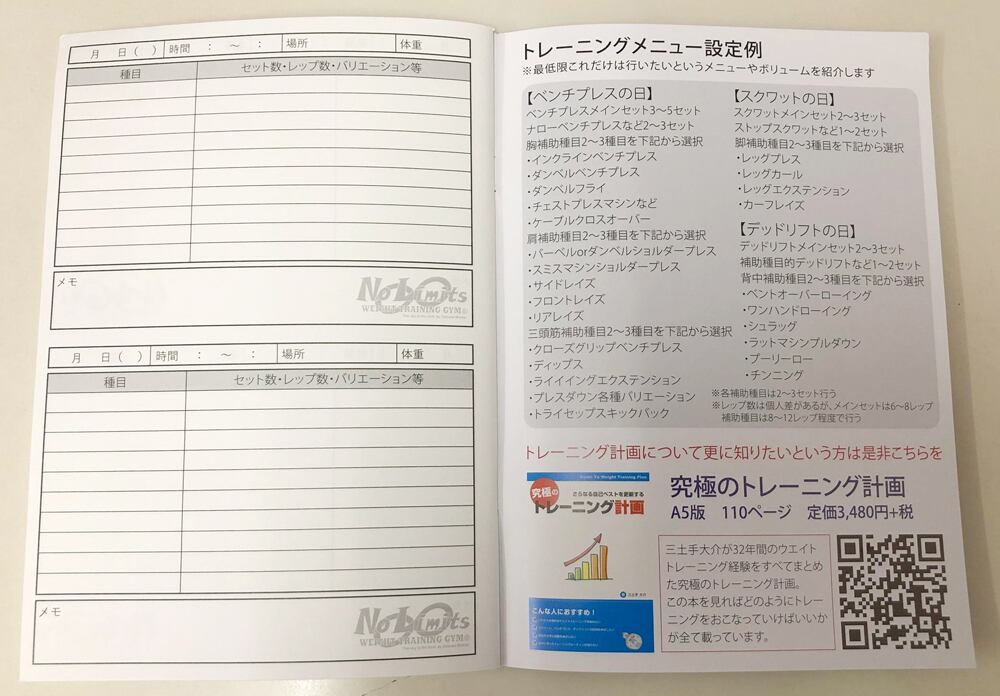 月 日( ) 時間 : ~ : 場所 体重
種目 セット数・レップ数・バリエーション等
メモ
No Limits
WEIGHT TRAINING GYM
月 日( ) 時間 : ~ : 場所 体重
種目 セット数・レップ数・バリエーション等
メモ
No Limits
WEIGHT TRAINING GYM
トレーニングメニュー設定例
※最低限これだけは行いたいというメニューやボリュームを紹介します
【ベンチプレスの日】
ベンチプレスメインセット3〜5セット
ナローベンチプレスなど2〜3セット
胸補助種目2〜3種目を下記から選択
・インクラインベンチプレス
・ダンベルベンチプレス
・ダンベルフライ
・チェストプレスマシンなど
・ケーブルクロスオーバー
肩補助種目2〜3種目を下記から選択
・バーベルorダンベルショルダープレス
・スミスマシンショルダープレス
・サイドレイズ
・フロントレイズ
・リアレイズ
三頭筋補助種目2〜3種目を下記から選択
・クローズグリップベンチプレス
・ディップス
・ライイイングエクステンション
・プレスダウン各種バリエーション
・トライセップスキックバック
【スクワットの日】
スクワットメインセット2〜3セット
ストップスクワットなど1〜2セット
脚補助種目2〜3種目を下記から選択
・レッグプレス
・レッグカール
・レッグエクステンション
・カーフレイズ
【デッドリフトの日】
デッドリフトメインセット2〜3セット
補助種目的デッドリフトなど1〜2セット
背中補助種目2〜3種目を下記から選択
・ベントオーバーローイング
・ワンハンドローイング
・シュラッグ
・ラットマシンプルダウン
・プーリーロー
・チンニング
※各補助種目は2〜3セット行う
※レップ数は個人差があるが、メインセットは6〜8レップ
補助種目は8〜12レップ程度で行う
トレーニング計画について更に知りたいという方は是非こちらを
さらなる自己ベストを更新する
究極の
トレーニング計画
こんな人におすすめ!
究極のトレーニング計画
A5版 110ページ 定価3,480円+税
三土手大介が32年間のウエイト
トレーニング経験をすべてまとめ
た究極のトレーニング計画。
この本を見ればどのようにトレー
ニングをおこなっていけばいいか
が全て載っています。